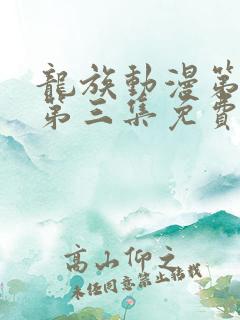 龍族動漫第
第三集免費
高山仰之
未经同意禁止转载